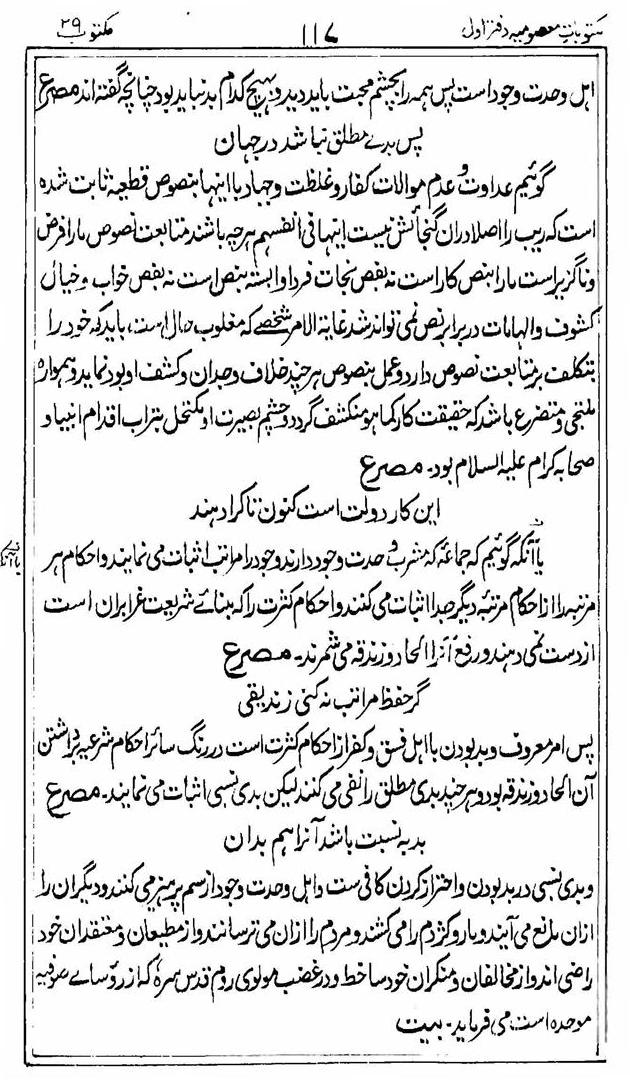 مکتوبات معصومیه دفتر اول ۱۱۷ مکتوب ۲۹
اہل وحدت وجود است پس ہمہ را بچشم محبت باید دید و بہیچ کدام بد نباید بود چنانچہ گفتہ اند مصرع
پس بدے مطلق نباشد در جہان
گوئیم عداوت و عدم موالات کفار و غلظت و جہاد با اینہا بنصوص قطعیہ ثابت شدہ
است کہ ریب را اصلا دران گنجائش نیست اینہا فی انفسہم ہرچہ باشند متابعت نصوص ما را فرض
و ناگزیر است ما را بنص کار است نہ بفص نجات فردا وابستہ بنص است نہ بفص خواب و خیال
کشوف و الہامات در برابر نص نمی تواند شد غایة الامر شخصے کہ مغلوب حال است، باید کہ خود را
بتکلف بر متابعت نصوص دارد و عمل بنصوص ہر چند خلاف وجدان و کشف او بود نماید و ہموارہ
ملتجی و متضرع باشد کہ حقیقت کار کما ہو منکشف گردد و چشم بصیرت او مکتحل بتراب اقدام انبیا و
صحابہ کرام علیہ السلام بود۔ مصرع
این کار دولت است کنون تا کرا دہند
یا آنکہ گوئیم کہ جماعۂ کہ مشرب وحدت وجود دارند وجود را مراتب اثبات می نمایند و احکام ہر
مرتبہ را از احکام مرتبۂ دیگر جدا اثبات می کنند و احکام کثرت را کہ بنائے شریعت غرا بران است
از دست نمی دہند و رفع آنرا الحاد و زندقہ می شمرند۔ مصرع
گر حفظ مراتب نہ کنی زندیقی
پس امر معروف و بد بودن با اہل فسق و کفر از احکام کثرت است در رنگ سائر احکام شرعیہ برداشتن
آن الحاد و زندقہ بود و ہر چند بدی مطلق را نفی می کنند لیکن بدی نسبی اثبات می نمایند۔ مصرع
بد بہ نسبت باشد آنرا ہم بدان
و بدی نسبی در بد بودن و احتراز کردن کافی ست و اہل وحدت وجود از سم پرہیز می کنند و دیگران را
ازان مانع می آیند و مار و کژدم را می کشند و مردم را ازان می ترسانند و از مطیعان و معتقدان خود
راضی اند و از مخالفان و منکران خود ساخط و در غضب مولوی روم قدس سرہ کہ از رؤسائے صوفیہ
موحدہ است، می فرماید۔ بیت